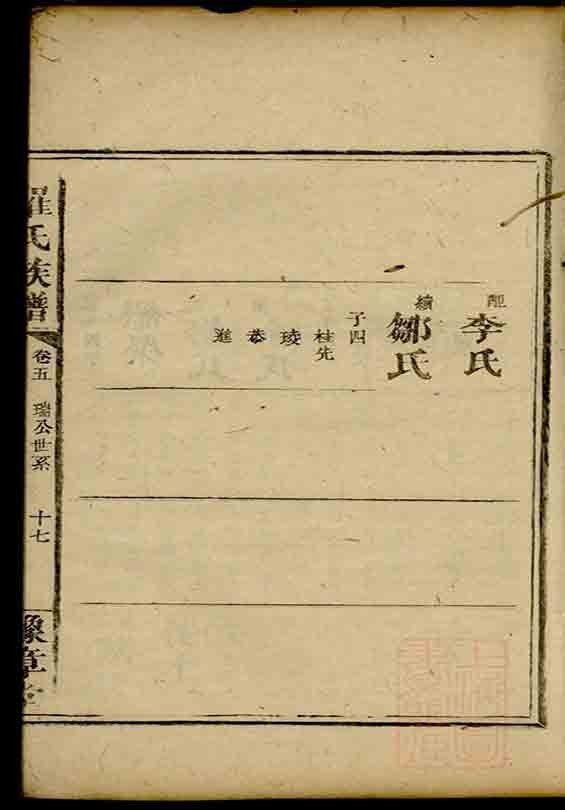 配
李氏
續
鄒氏
子四
桂先
琰
恭
進
羅氏族譜
卷五
瑞公世系
十七
豫章堂